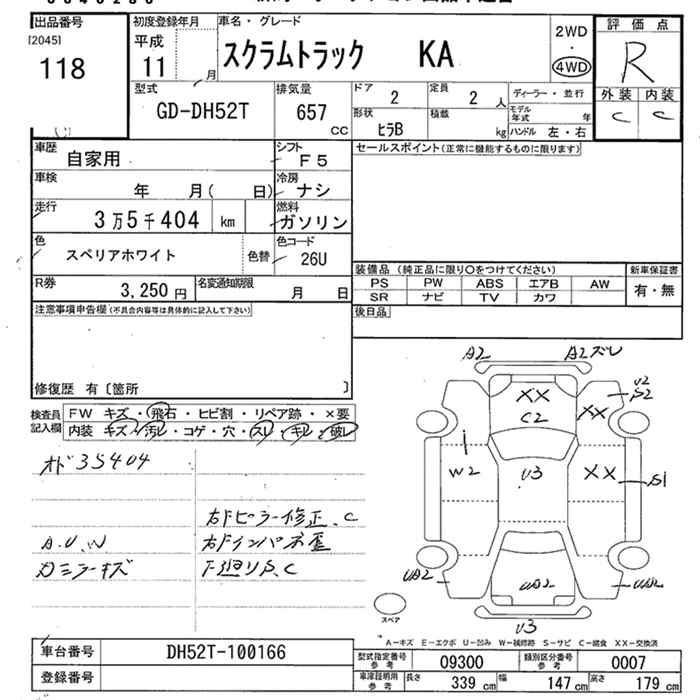 出品番号
[2045]
118
初度登録年月
平成
11
月
車名・グレード
スクラムトラック KA
2WD
・
4WD
評価点
R
外装 内装
C C
型式
GD-DH52T
排気量
657
CC
ドア
2
定員
2 人
形状
ヒラB
積載
kg
ディーラー・並行
モデル年式 年
ハンドル 左・右
車歴
自家用
シフト
F5
車検
年 月( 日)
冷房
ナシ
走行
3万5千404 km
燃料
ガソリン
色
スペリアホワイト
色替
色コード
26U
R券
3,250 円
名変通知期限
月 日
セールスポイント(正常に機能するものに限ります)
装備品(純正品に限り○をつけてください)
新車保証書
PS PW ABS エアB AW
SR ナビ TV カワ
有・無
後日品
注意事項申告欄(不具合内容等は具体的に記入して下さい)
修復歴 有〔箇所 〕
検査員
記入欄
FW キズ・飛石・ヒビ割・リペア跡・×要
内装 キズ・汚レ・コゲ・穴・スレ・キレ・破レ
オド 35404
右Fピラー修正、C
A.U.W
右Fインパネ歪
カミラーキズ
下廻りS、C
A2
A2ズレ
XX
C2
U2
S2
XX
W2
U3
XX
S1
UA2
UA2
UA2
U3
スペア
A-キズ E-エクボ U-凹み W-補修跡 S-サビ C-腐食 XX-交換済
車台番号
DH52T-100166
登録番号
型式指定番号
参考
09300
類別区分番号
参考
0007
車庫証明用
参考
長さ
339 cm
幅
147 cm
高さ
179 cm